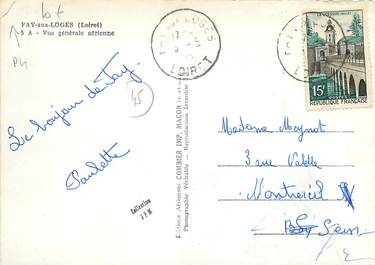 lot
PM
FAY-aux-LOGES (Loiret)
5 A - Vue générale aérienne
45
Le bonjour de Fay.
Paulette
Collection
Editions Aériennes COMBIER IMP. MACON
Photographie Véritable - Reproduction Interdite
FAY AUX LOGES
LOIRET
FAY AUX LOGES
LOIRET
15F
POSTES
REPUBLIQUE FRANÇAISE
Madame Meynot
3 rue Valette
Montreuil
Seine